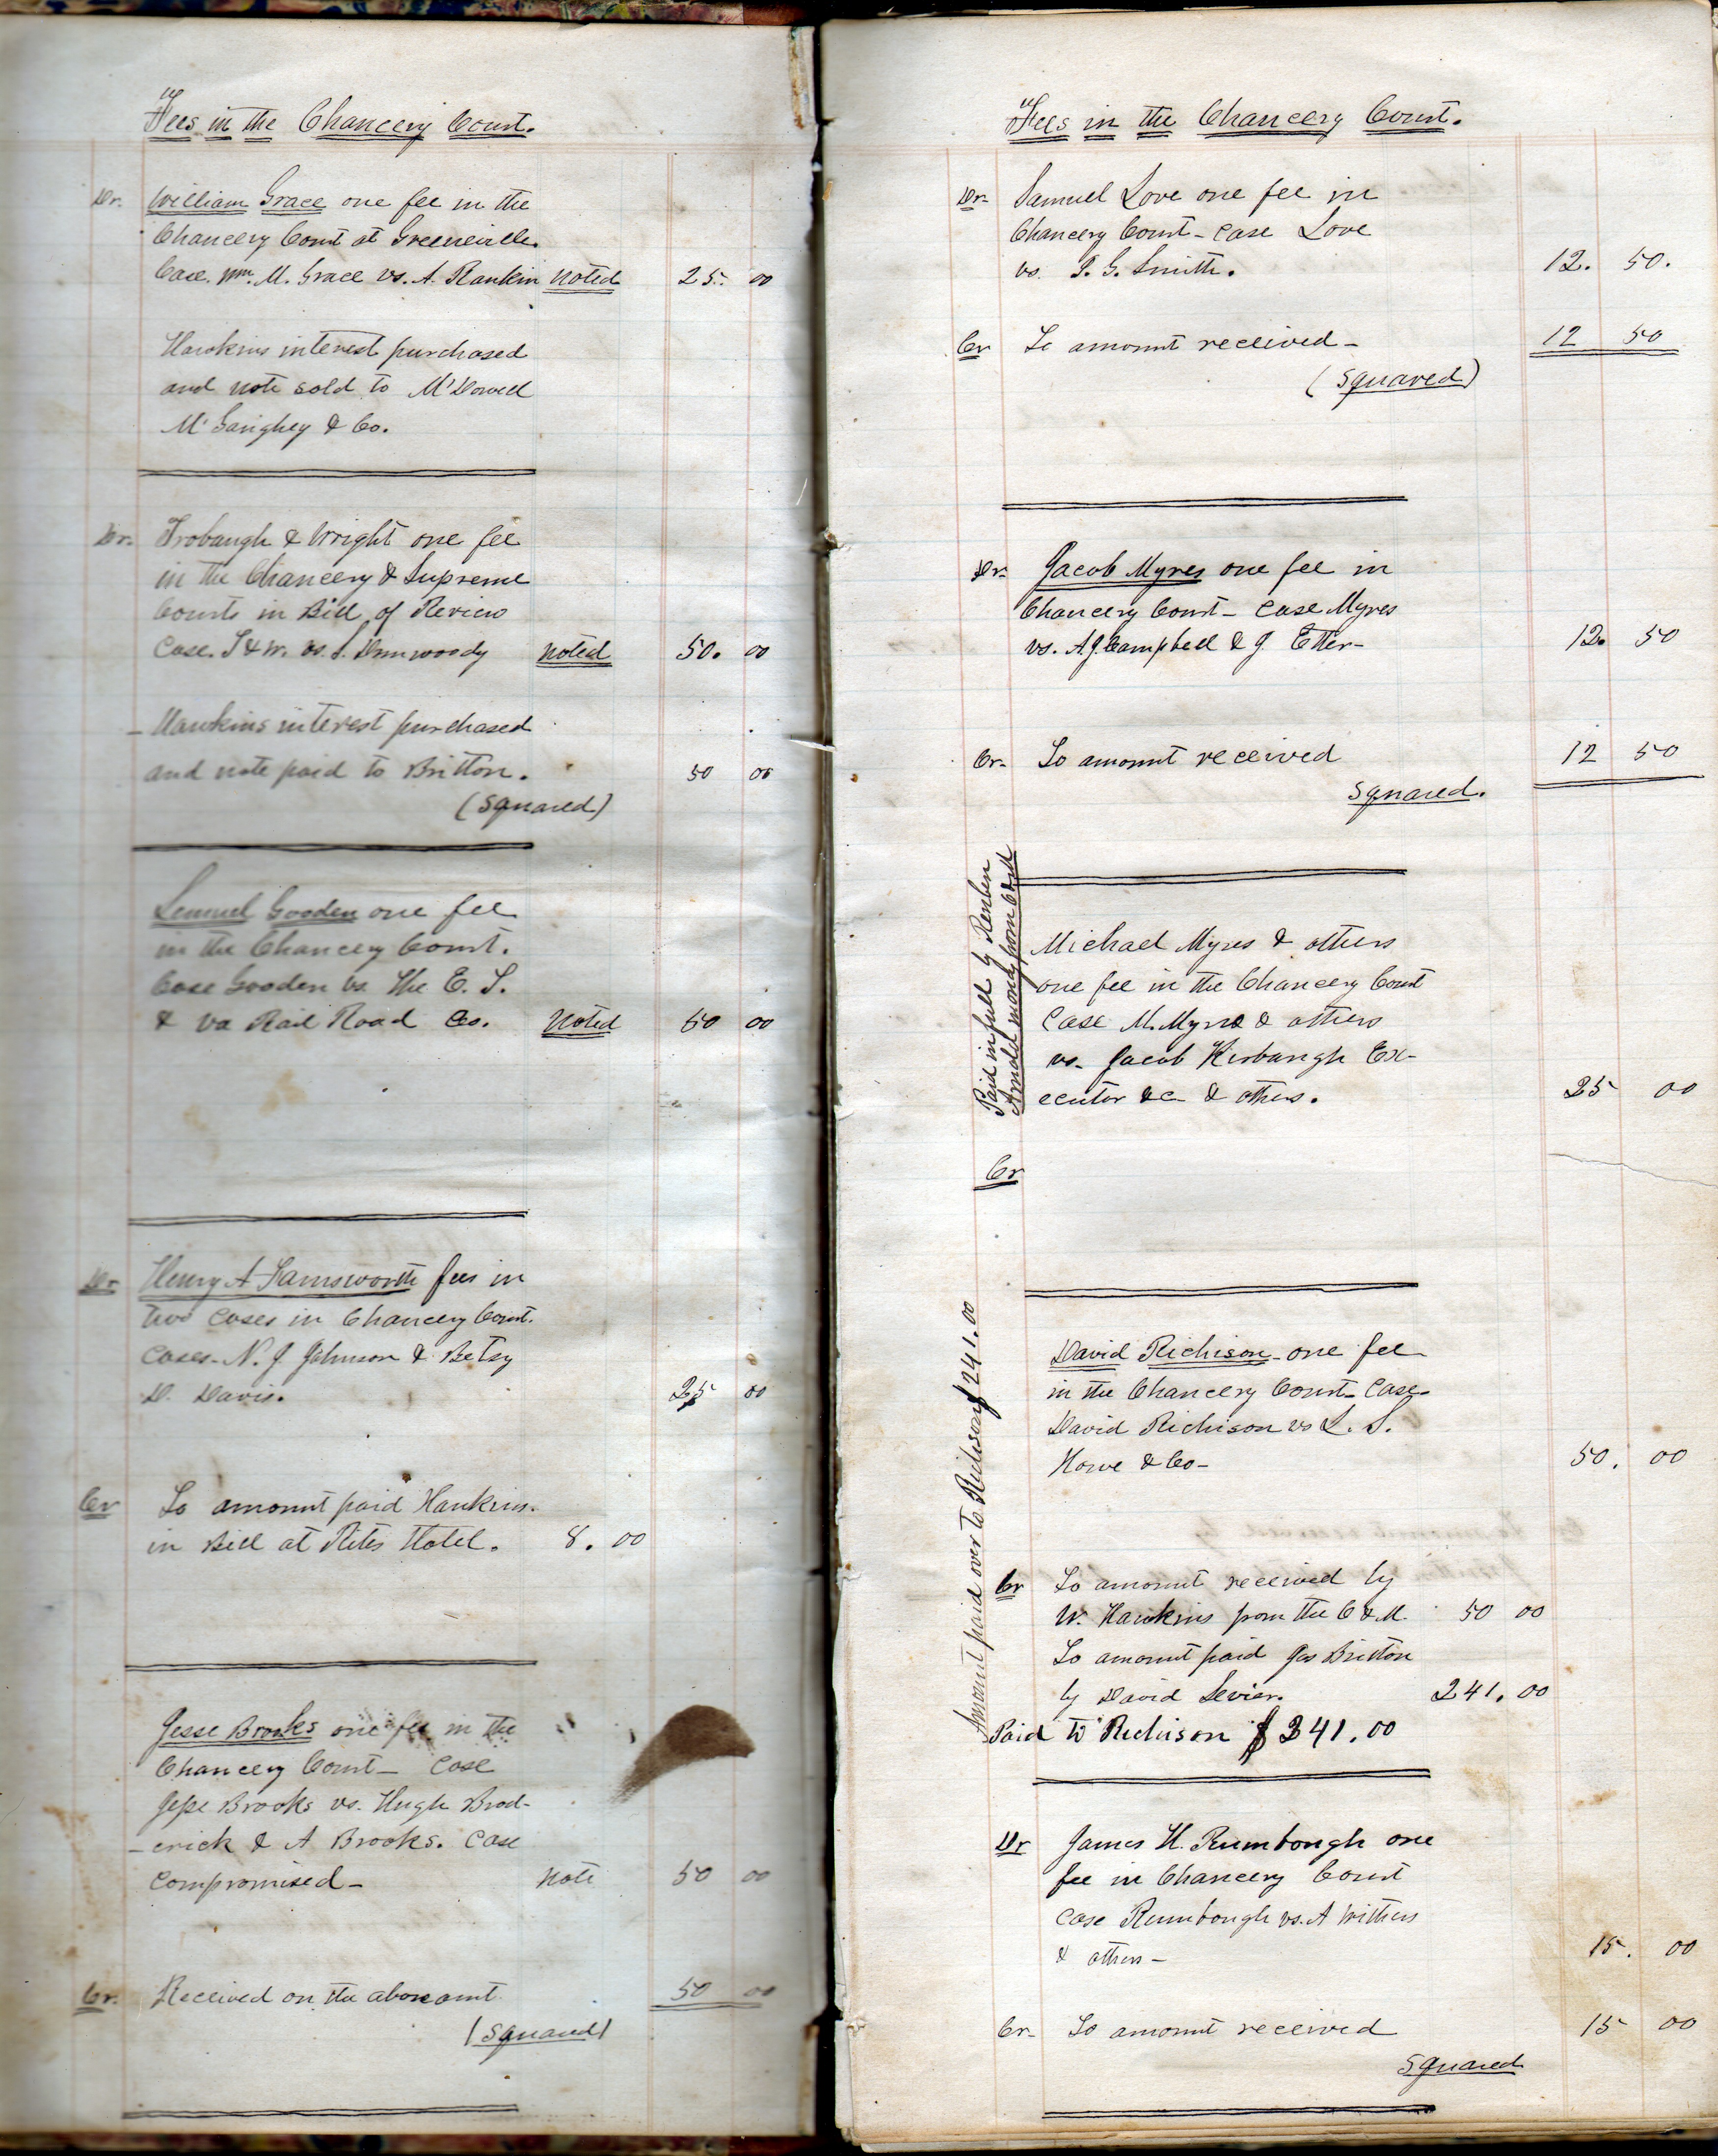 Fees in the Chancery Court.
Dr. William Grace one fee in the
Chancery Court at Greeneville.
Case. Wm. M. Grace vs. A. Rankin noted 25. 00
Hawkins interest purchased
and note sold to McDowell
McGaughey & Co.
Dr. Trobaugh & Wright one fee
in the Chancery & Supreme
Courts in Bill of Review
Case. T & W. vs. S. Dunwoody noted 50. 00
Hawkins interest purchased
and note paid to Britton. 50 00
(Squared)
Lemuel Gooden one fee
in the Chancery Court.
Case Gooden vs. The E. T.
& Va Rail Road Co. Noted 50 00
Dr Henry A Farnsworth fees in
two cases in Chancery Court.
Cases. N. J. Johnson & Betsy
D. Davis. 25 00
Cr To amount paid Hawkins.
in Bill at Hotel. 8. 00
Jesse Brooks one fee in the
Chancery Court - Case
Jesse Brooks vs. Hugh Brod-
erick & A Brooks. Case
Compromised - note 50 00
Cr. Received on the above amt. 50 00
(Squared)
Fees in the Chancery Court.
Dr. Samuel Love one fee in
Chancery Court - Case Love
vs. G. Smith. 12. 50.
Cr To amount received - 12 50
(Squared)
Dr. Jacob Myres one fee in
Chancery Court - Case Myres
vs. A. J. Campbell & J. Etter - 12. 50
Cr. To amount received 12 50
Squared.
Paid in full by Reuben
Arnold money from C & M
Michael Myres & others
one fee in the Chancery Court
Case M. Myres & others
vs. Jacob Kerbaugh Ex-
ecutor &c & others. 25 00
Cr
David Richison - one fee
in the Chancery Court - Case -
David Richison vs L. S.
Howe & Co - 50. 00
Amount paid over to Richison $241.00
Cr To amount received by
W. Hawkins from the C & M. 50 00
To amount paid Jas Britton
by David Sevier. 241. 00
Paid to Richison $ 241.00
Dr James H. Rumbough one
fee in Chancery Court
Case Rumbough vs. A Withers
& others - 15. 00
Cr. To amount received 15 00
Squared